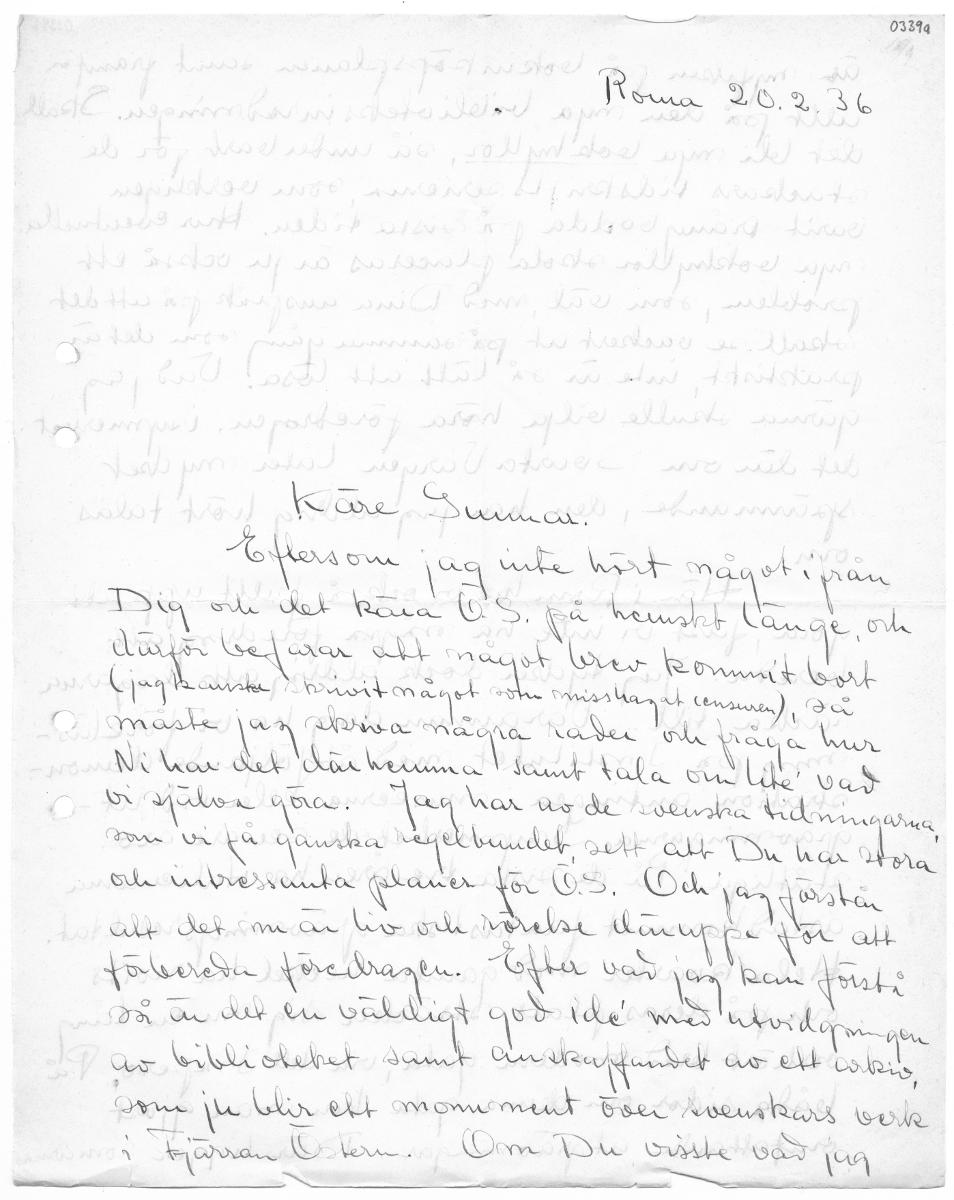 0339a
Roma 20.2.36
Käre Gunnar.
Eftersom jag inte hört något ifrån
Dig och det kära Ö.S. på hemskt länge, och
därför befarar att något brev kommit bort
(jag kanske skrivit något som misshagat censuren), så
måste jag skriva några rader och fråga hur
Ni har det därhemma samt tala om lite vad
vi själva göra. Jag har av de svenska tidningarna,
som vi få ganska regelbundet, sett att Du har stora
och intressanta planer för Ö.S. Och jag förstår
att det nu är liv och rörelse däruppe för att
förbereda föredragen. Efter vad jag kan förstå
så är det en väldigt god idé med utvidgningen
av biblioteket samt anskaffandet av ett arkiv,
som ju blir ett monument över svenskars verk
i Fjärran Östern. Om Du visste vad jag